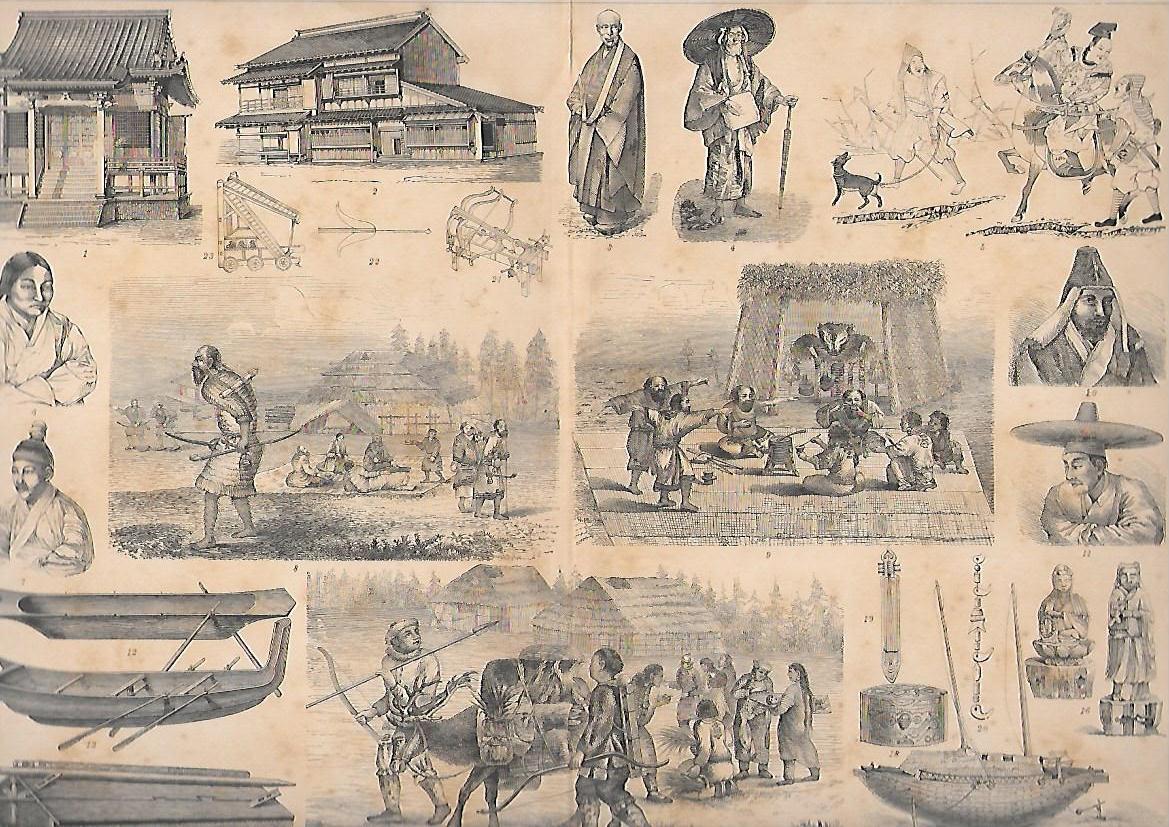 1
2
3
4
5
23
22
6
10
7
8
9
11
12
13
19
20
18
16